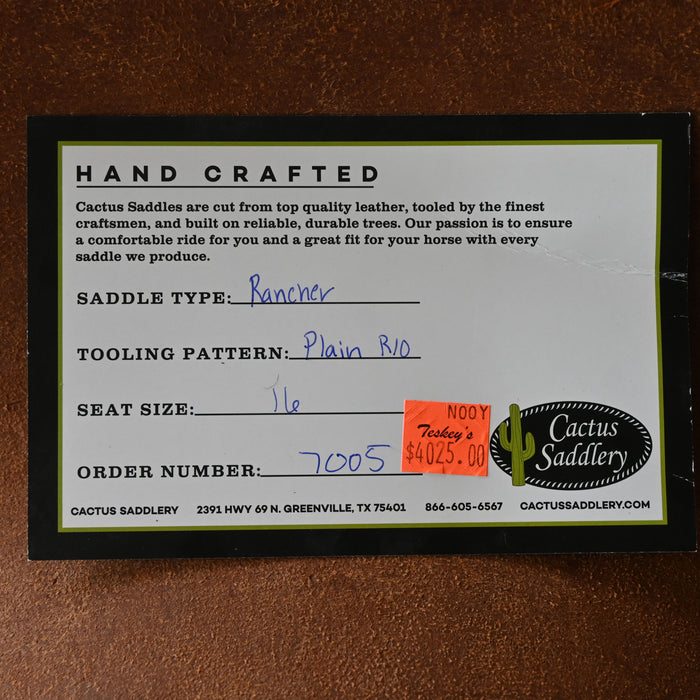 HAND CRAFTED
Cactus Saddles are cut from top quality leather, tooled by the finest
craftsmen, and built on reliable, durable trees. Our passion is to ensure
a comfortable ride for you and a great fit for your horse with every
saddle we produce.
SADDLE TYPE: Rancher
TOOLING PATTERN: Plain RIO
SEAT SIZE: 16
ORDER NUMBER: 7005
NOOY
Teskey's
$4025.00
Cactus
Saddlery
CACTUS SADDLERY 2391 HWY 69 N. GREENVILLE, TX 75401 866-605-6567 CACTUSSADDLERY.COM